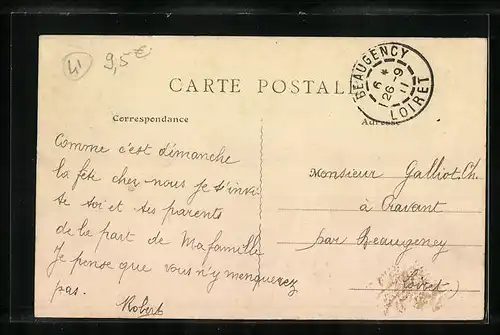 41
9,5€
CARTE POSTALE
BEAUGENCY
6 *
26-9
11
LOIRET
Correspondance
Adresse
Comme c'est démanche
la fête chez nous je t'invi
te toi et tes parents
de la part de Ma famille
Je pense que vous n'y menquerez
pas.
Robert
Monsieur Galliot. Ch.
à Cravant
par Beaugency
(Loiret.)